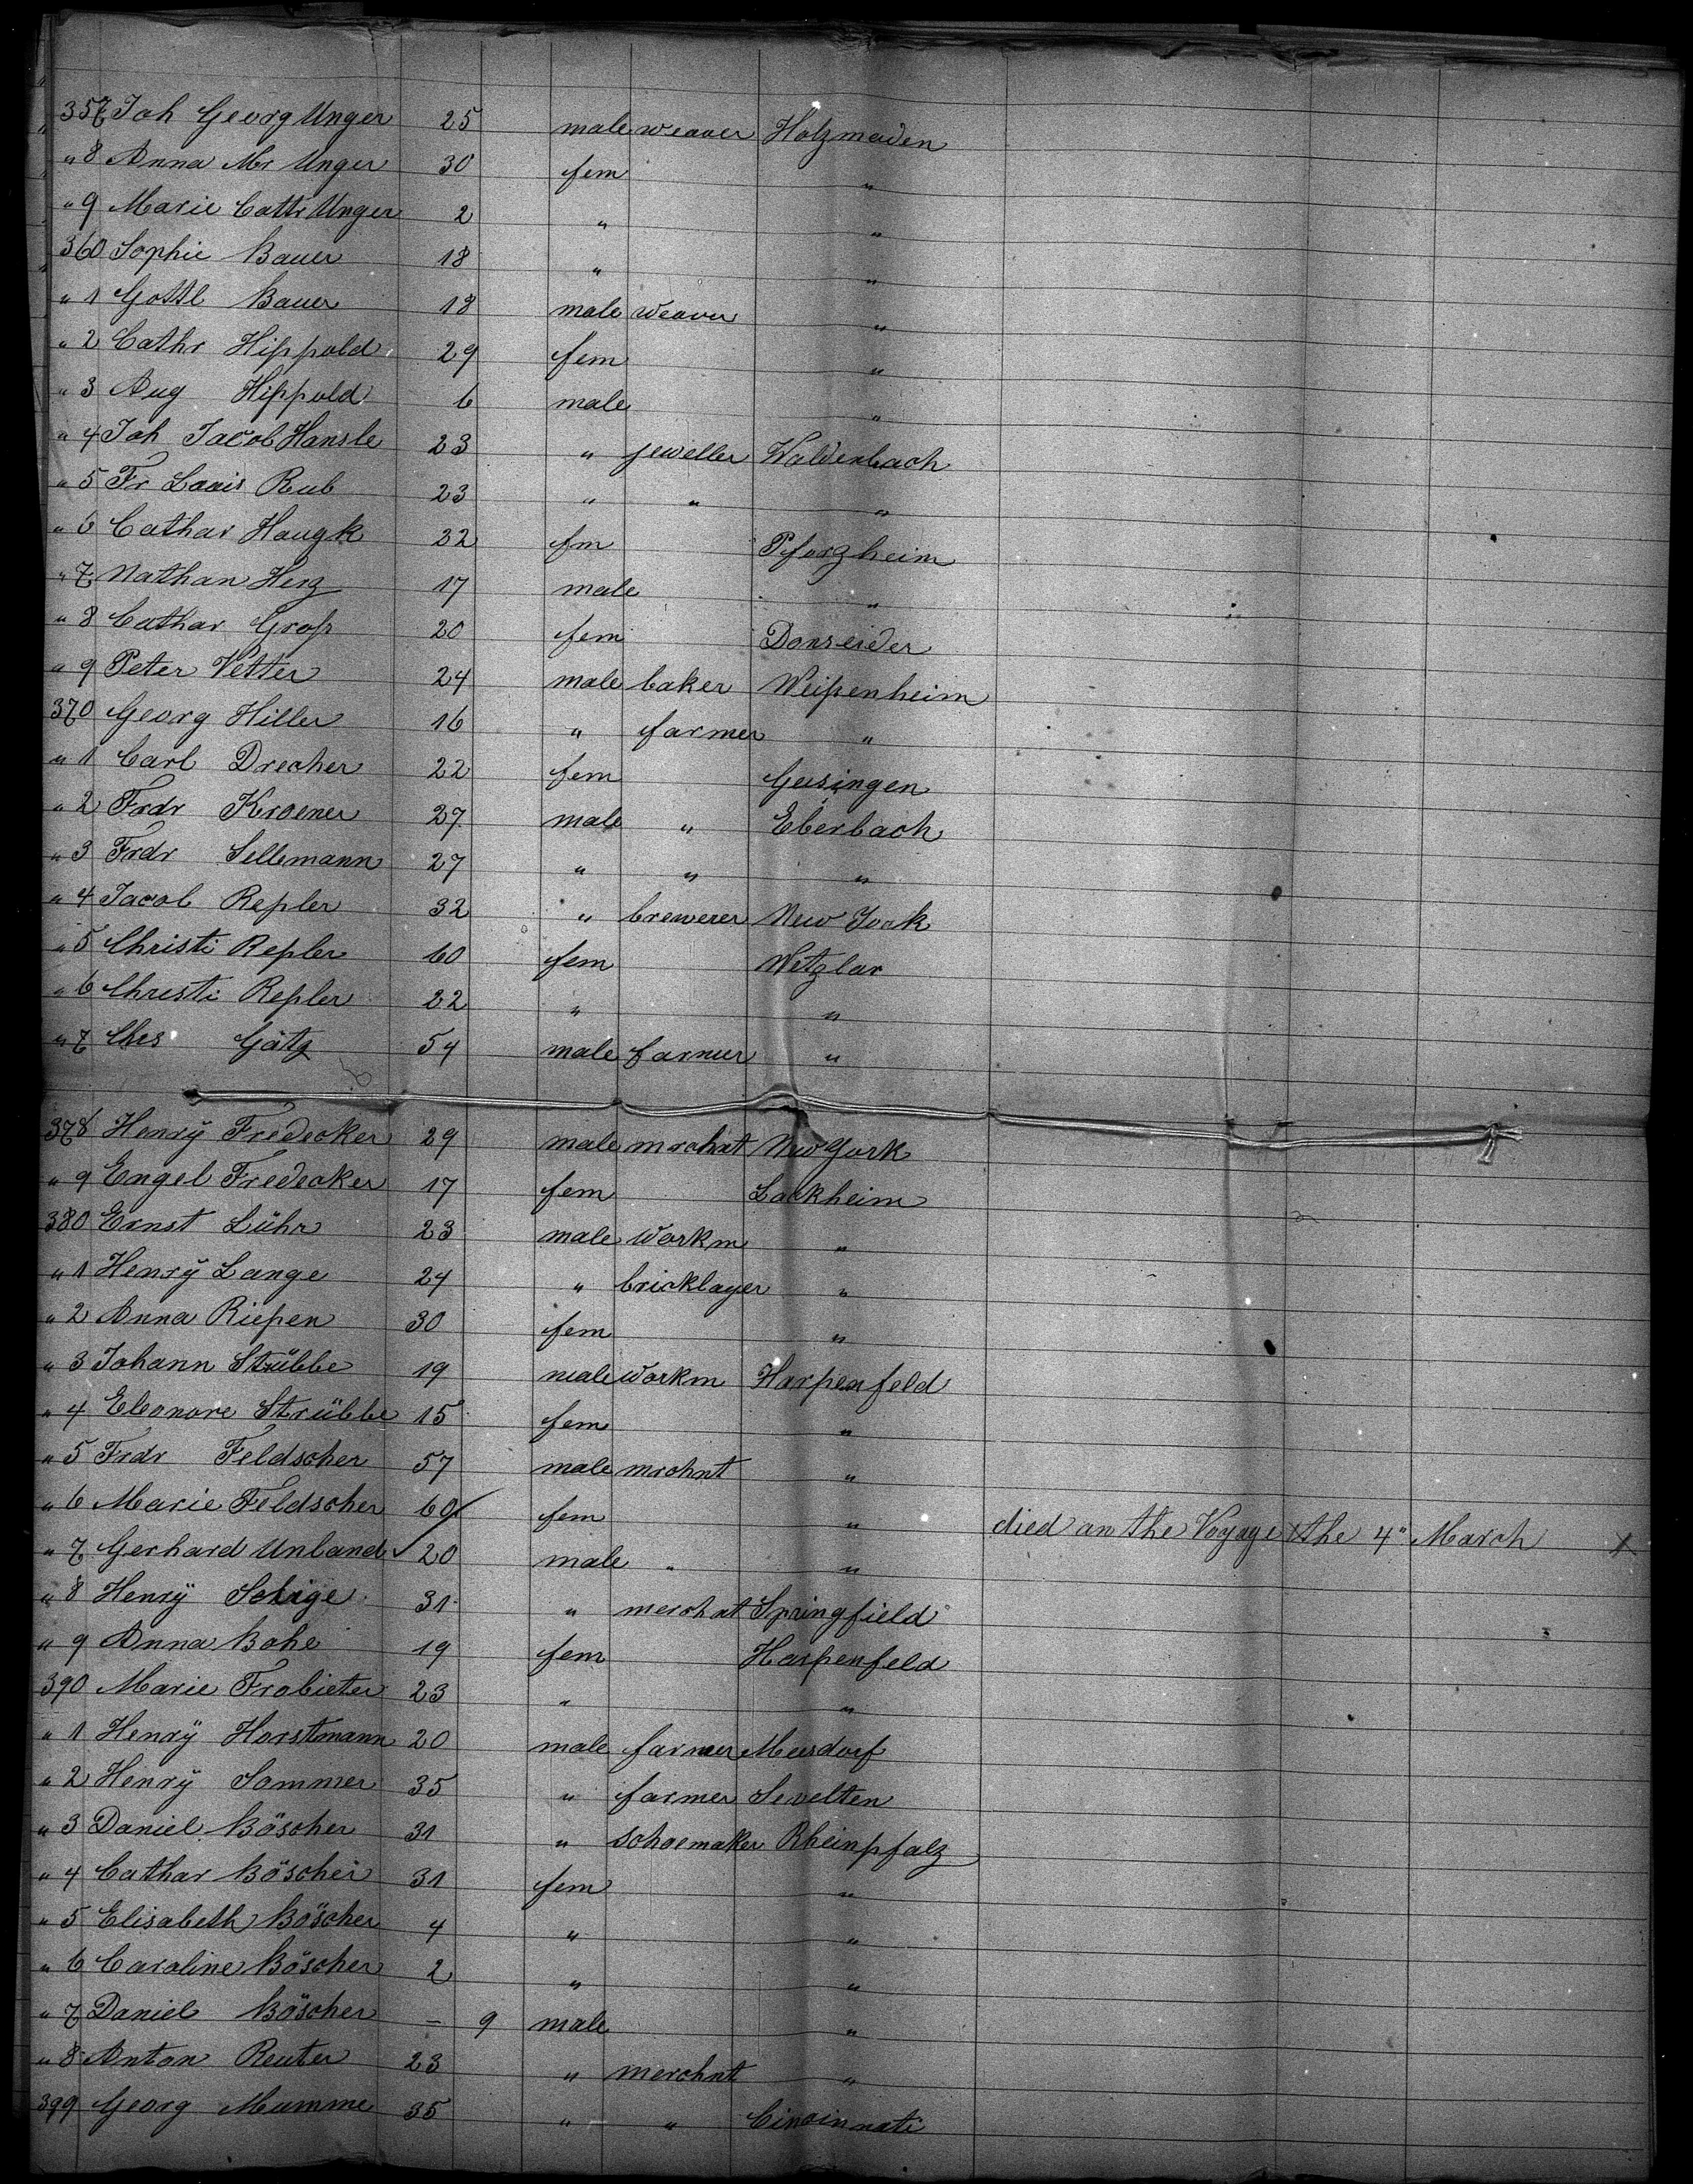 357 Joh Georg Unger 25 male weaver Holzmaden
" 8 Anna Mr Unger 30 fem "
" 9 Marie Cathr Unger 2 " "
360 Sophie Bauer 18 " "
" 1 Gottl Bauer 18 male weaver "
" 2 Cathr Hippold 29 fem "
" 3 Aug Hippold 6 male "
" 4 Joh Jacob Hansle 23 " jeweller Waldenbach
" 5 Fr Louis Rub 23 " " "
" 6 Cathar Haugk 32 fm Pforzheim
" 7 Nathan Herz 17 male "
" 8 Cathar Groß 20 fem Donseider
" 9 Peter Vetter 24 male baker Weißenheim
370 Georg Hiller 16 " farmer "
" 1 Carl Drecher 22 fem Geisingen
" 2 Frdr Kroener 27 male " Eberbach
" 3 Frdr Sellemann 27 " " "
" 4 Jacob Repler 32 " brewerer New York
" 5 Christi Repler 60 fem Wetzlar
" 6 Christi Repler 22 " "
" 7 Ches Götz 54 male farmer "
378 Henrÿ Fredecker 29 male mrchnt New York
" 9 Engel Fredecker 17 fem Lackheim
380 Ernst Lühr 23 male workm "
" 1 Henrÿ Lange 24 " bricklayer "
" 2 Anna Riepen 30 fem "
" 3 Johann Strübbe 19 male workm Harpenfeld
" 4 Eleonore Strübbe 15 fem "
" 5 Frdr Feldscher 57 male mrchnt "
" 6 Marie Feldscher 60 fem " died an the Voyage the 4" March X
" 7 Gerhard Unland 20 male " "
" 8 Henrÿ 31 " merchnt Springfield
" 9 Anna Bohe 19 fem Harpenfeld
390 Marie Frobieter 23 " "
" 1 Henrÿ Horstmann 20 male farmer Meesdorf
" 2 Henrÿ Sommer 35 " farmer Sevelten
" 3 Daniel Böscher 31 " schoemaker Rheinpfalz
" 4 Cathar Böscher 31 fem "
" 5 Elisabeth Böscher 4 " "
" 6 Caroline Böscher 2 " "
" 7 Daniel Böscher – 9 male "
" 8 Anton Reuter 23 " merchnt "
399 Georg Mumme 35 " " Cincinnati